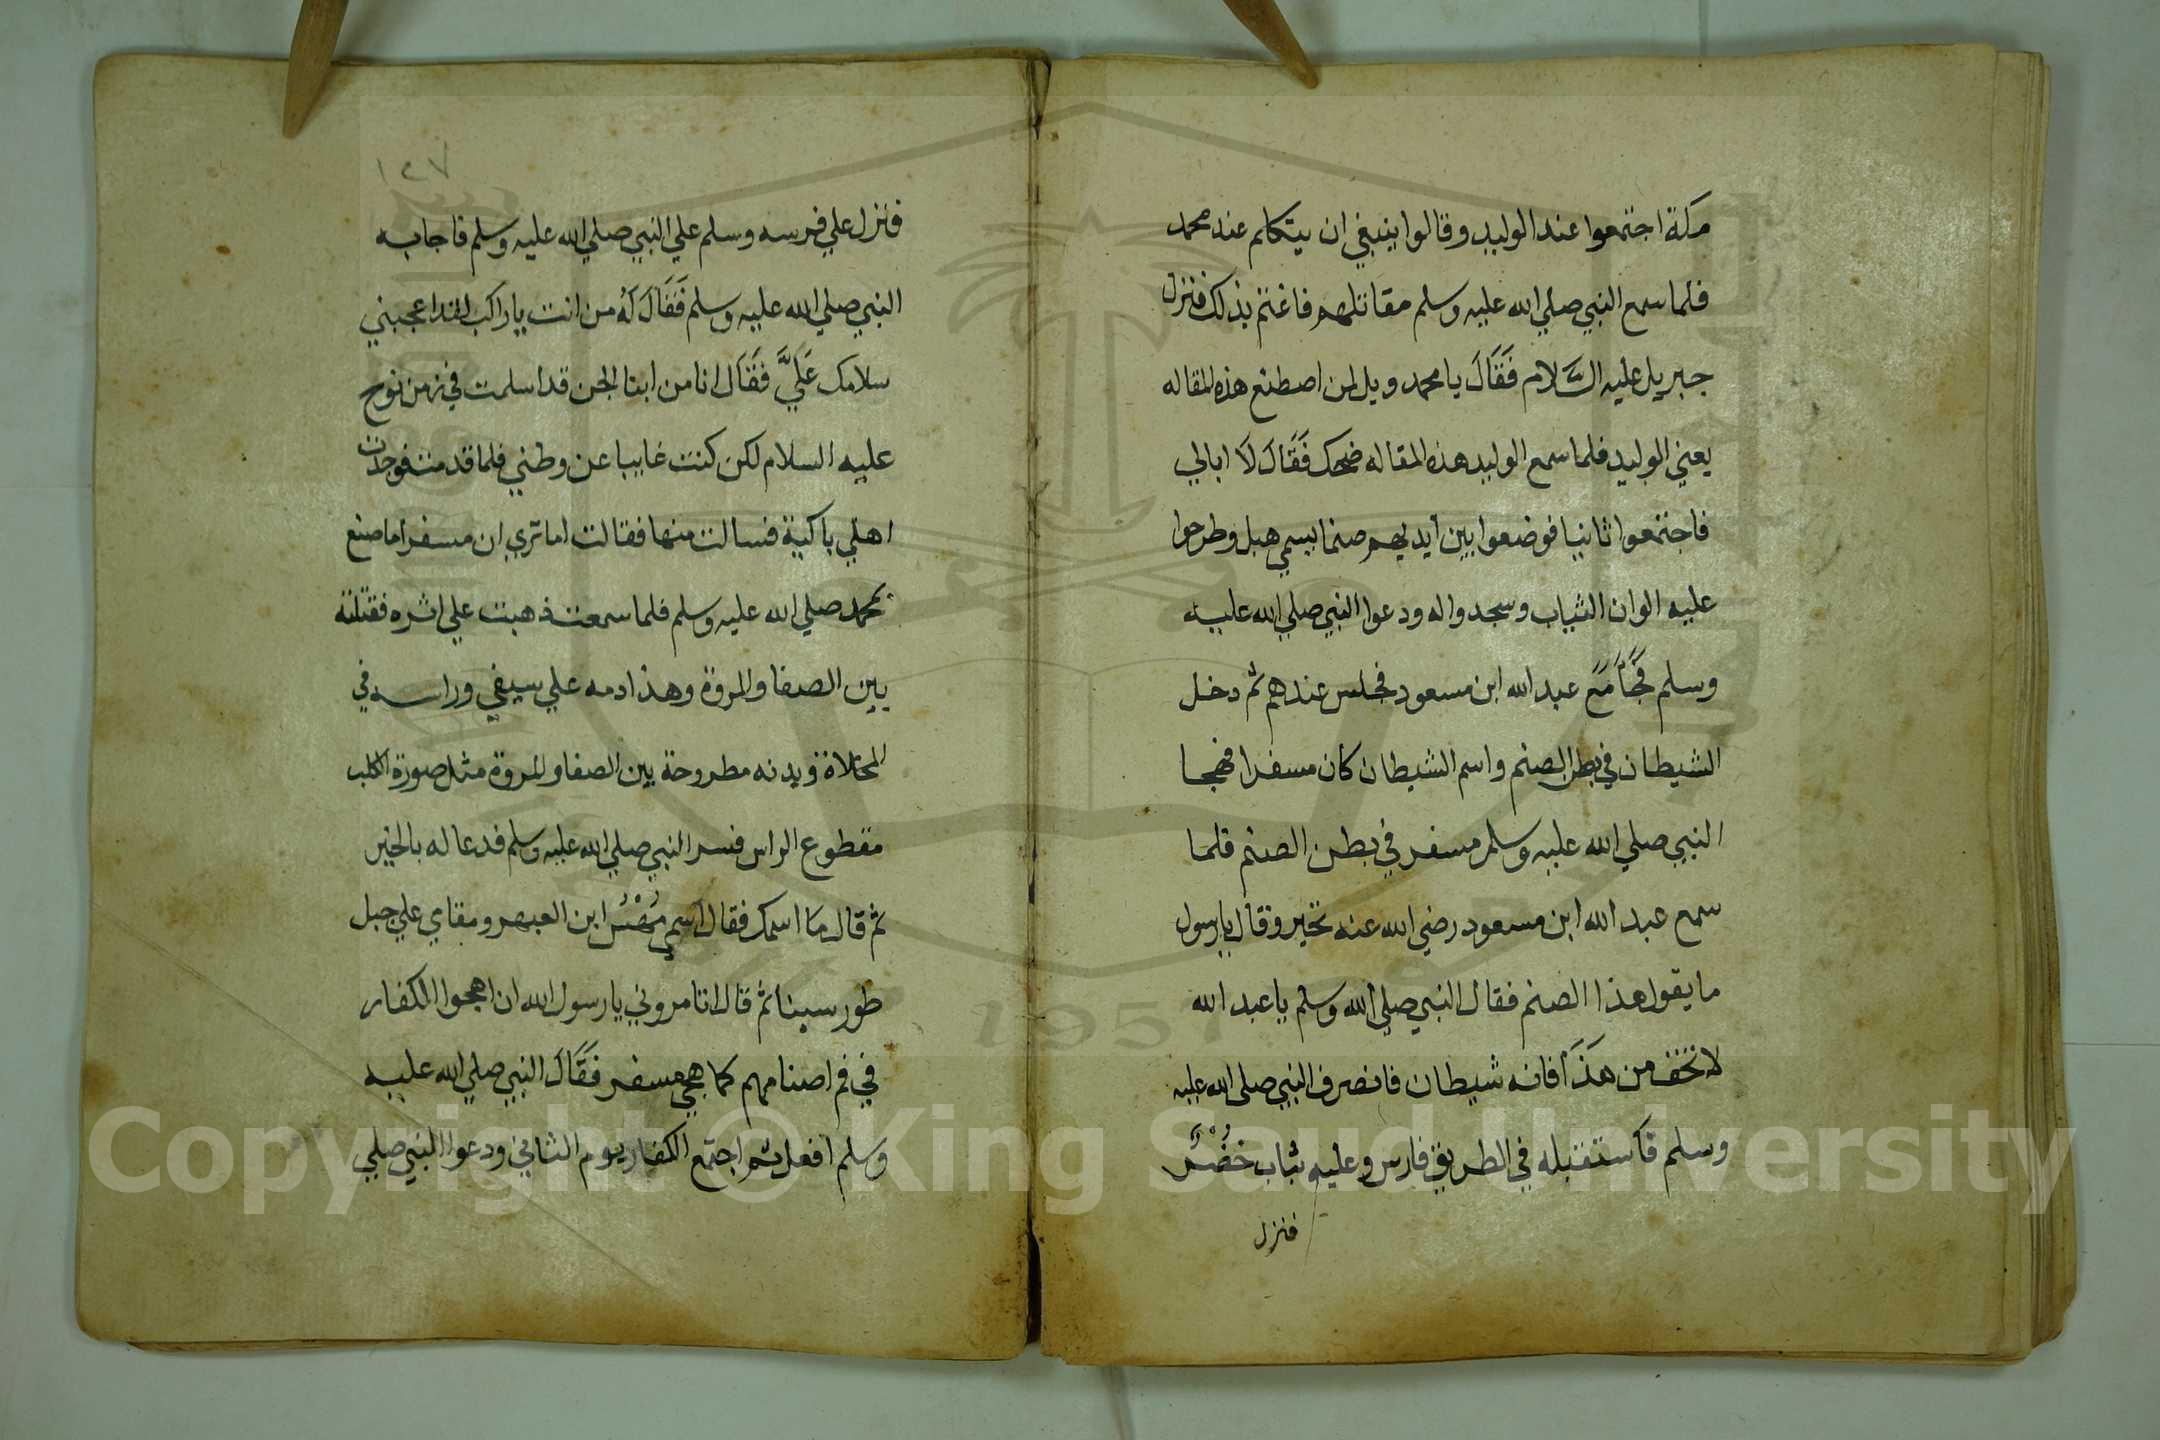 مكة اجتمعوا عند الوليد وقالوا ينبغي ان يتكلم عند محمد
فلما سمع النبي صلي الله عليه وسلم مقالتهم فاغتم بذلك فنزل
جبريل عليه السَّلام فَقَالَ يا محمد ويل لمن اصطنع هذه المقاله
يعني الوليد فلما سمع الوليد هذه المقاله ضحك فَقَالَ لَا ابالي
فاجتمعوا ثانيا فوضعوا بين ايديهم صنما يسمي هبل وطرحوا
عليه الوان الثياب وسجدوا له ودعوا النبي صلي الله عليه
وسلم فجَأ مَعَ عبد الله ابن مسعود فجلس عندهم ثم دخل
الشيطان في بطن الصنم واسم الشيطان كان مسفرا فهجا
النبي صلي الله عليه وسلم مسفر في بطن الصنم فلما
سمع عبد الله ابن مسعود رضي الله عنه تحير وقال يارسول
ما يقول هذا الصنم فقال النبي صلي الله وسلم يا عبد الله
لا تخف من هَذَا فانه شيطان فانصرف النبي صلي الله عليه
وسلم فاستقبله في الطريق فارس وعليه ثياب خُضْرٌ
فنزل
١٥٧
فنزل علي فرسه وسلم علي النبي صلي الله عليه وسلم فاجابه
النبي صلي الله عليه وسلم فَقَالَ لَهُ من انت يا راكب لقد اعجبني
سلامك عَلَيَّ فَقَال انا من ابنا الجن قد اسلمت في زمن نوح
عليه السلام لكن كنت غايبا عن وطني فلما قدمت فوجدت
اهلي باكية فسالت منها فقالت اما تري ان مسفرا ما صنع
بمحمد صلي الله عليه وسلم فلما سمعت ذهبت علي اثره فقتلته
بين الصفا والمروة وهذا دمه علي سيفي وراسه في
المخلاة وبدنه مطروحة بين الصفا والمروة مثل صورة الكلب
مقطوع الراس فسر النبي صلي الله عليه وسلم فدعا له بالخير
ثم قال ما اسمك فقال اسمي ابن العبهر ومقامي علي جبل
طور سينا ثم قال اتامروني يا رسول الله ان اهجوا الكفار
في فم اصنامهم كما هجي مسفر فَقَالَ النبي صلي الله عليه
وسلم افعل ثم اجتمع الكفار يوم الثاني ودعوا النبي صلي
Copyright © King Saud University
1957